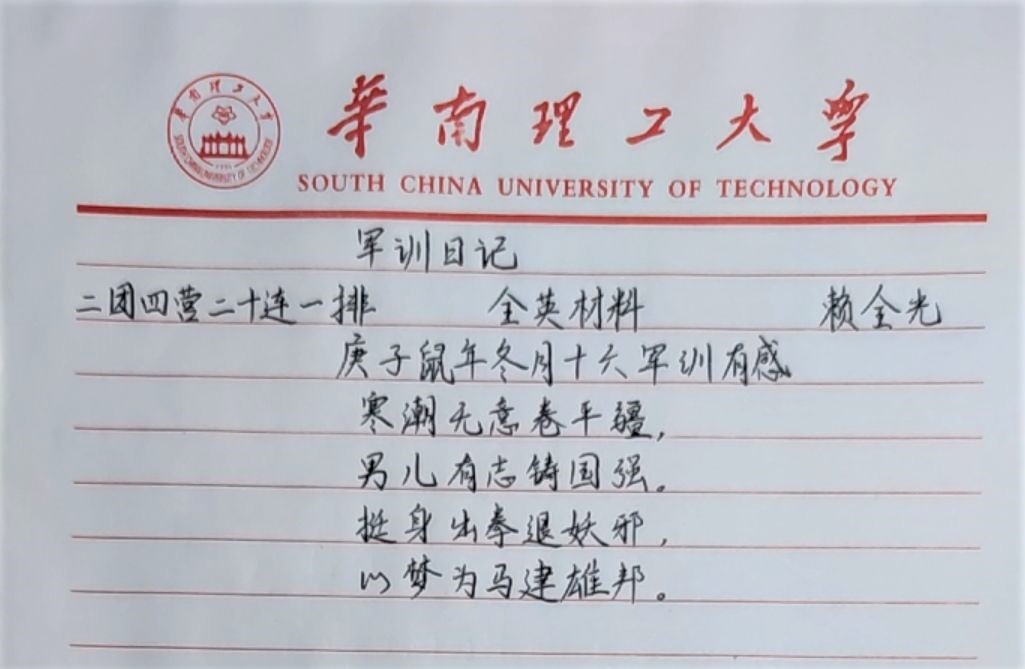 華南理工大學
SOUTH CHINA UNIVERSITY OF TECHNOLOGY
華南理工大學
SOUTH CHINA UNIVERSITY OF TECHNOLOGY
军训日记
二团四营二十连一排 全英材料 赖全光
庚子鼠年冬月十六军训有感
寒潮无意卷平疆，
男儿有志铸国强。
挺身出拳退妖邪，
以梦为马建雄邦。